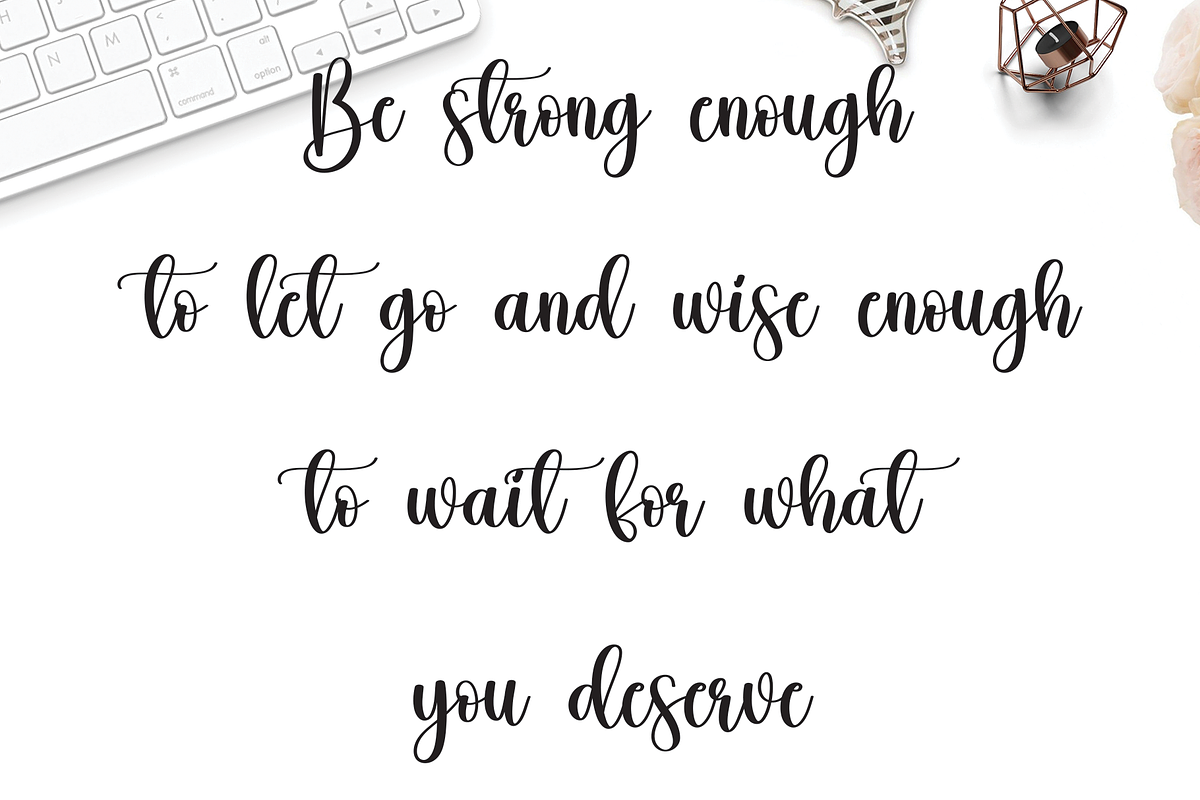 H
N
M
<
alt
option
⌘
command
Be strong enough
to let go and wise enough
to wait for what
you deserve